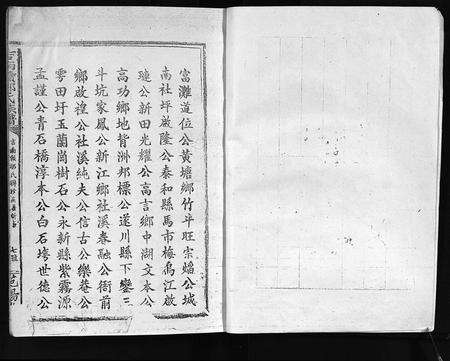 富灘道位公黃塘鄉竹斗旺宗蟠公城
南社坪啟隆公泰和縣馬市梅烏江啟
璉公新田光耀公高吉鄉中湖文本公
高功鄉地背洲邦標公遂川縣下鑾二
斗坑家鳳公新江鄉社溪春融公衙前
鄉啟徨公社溪純夫公信古公樂菴公
雩田圩玉藺崗樹石公永新縣紫霧源
孟謹公青石橋淳本公白石塆世德公